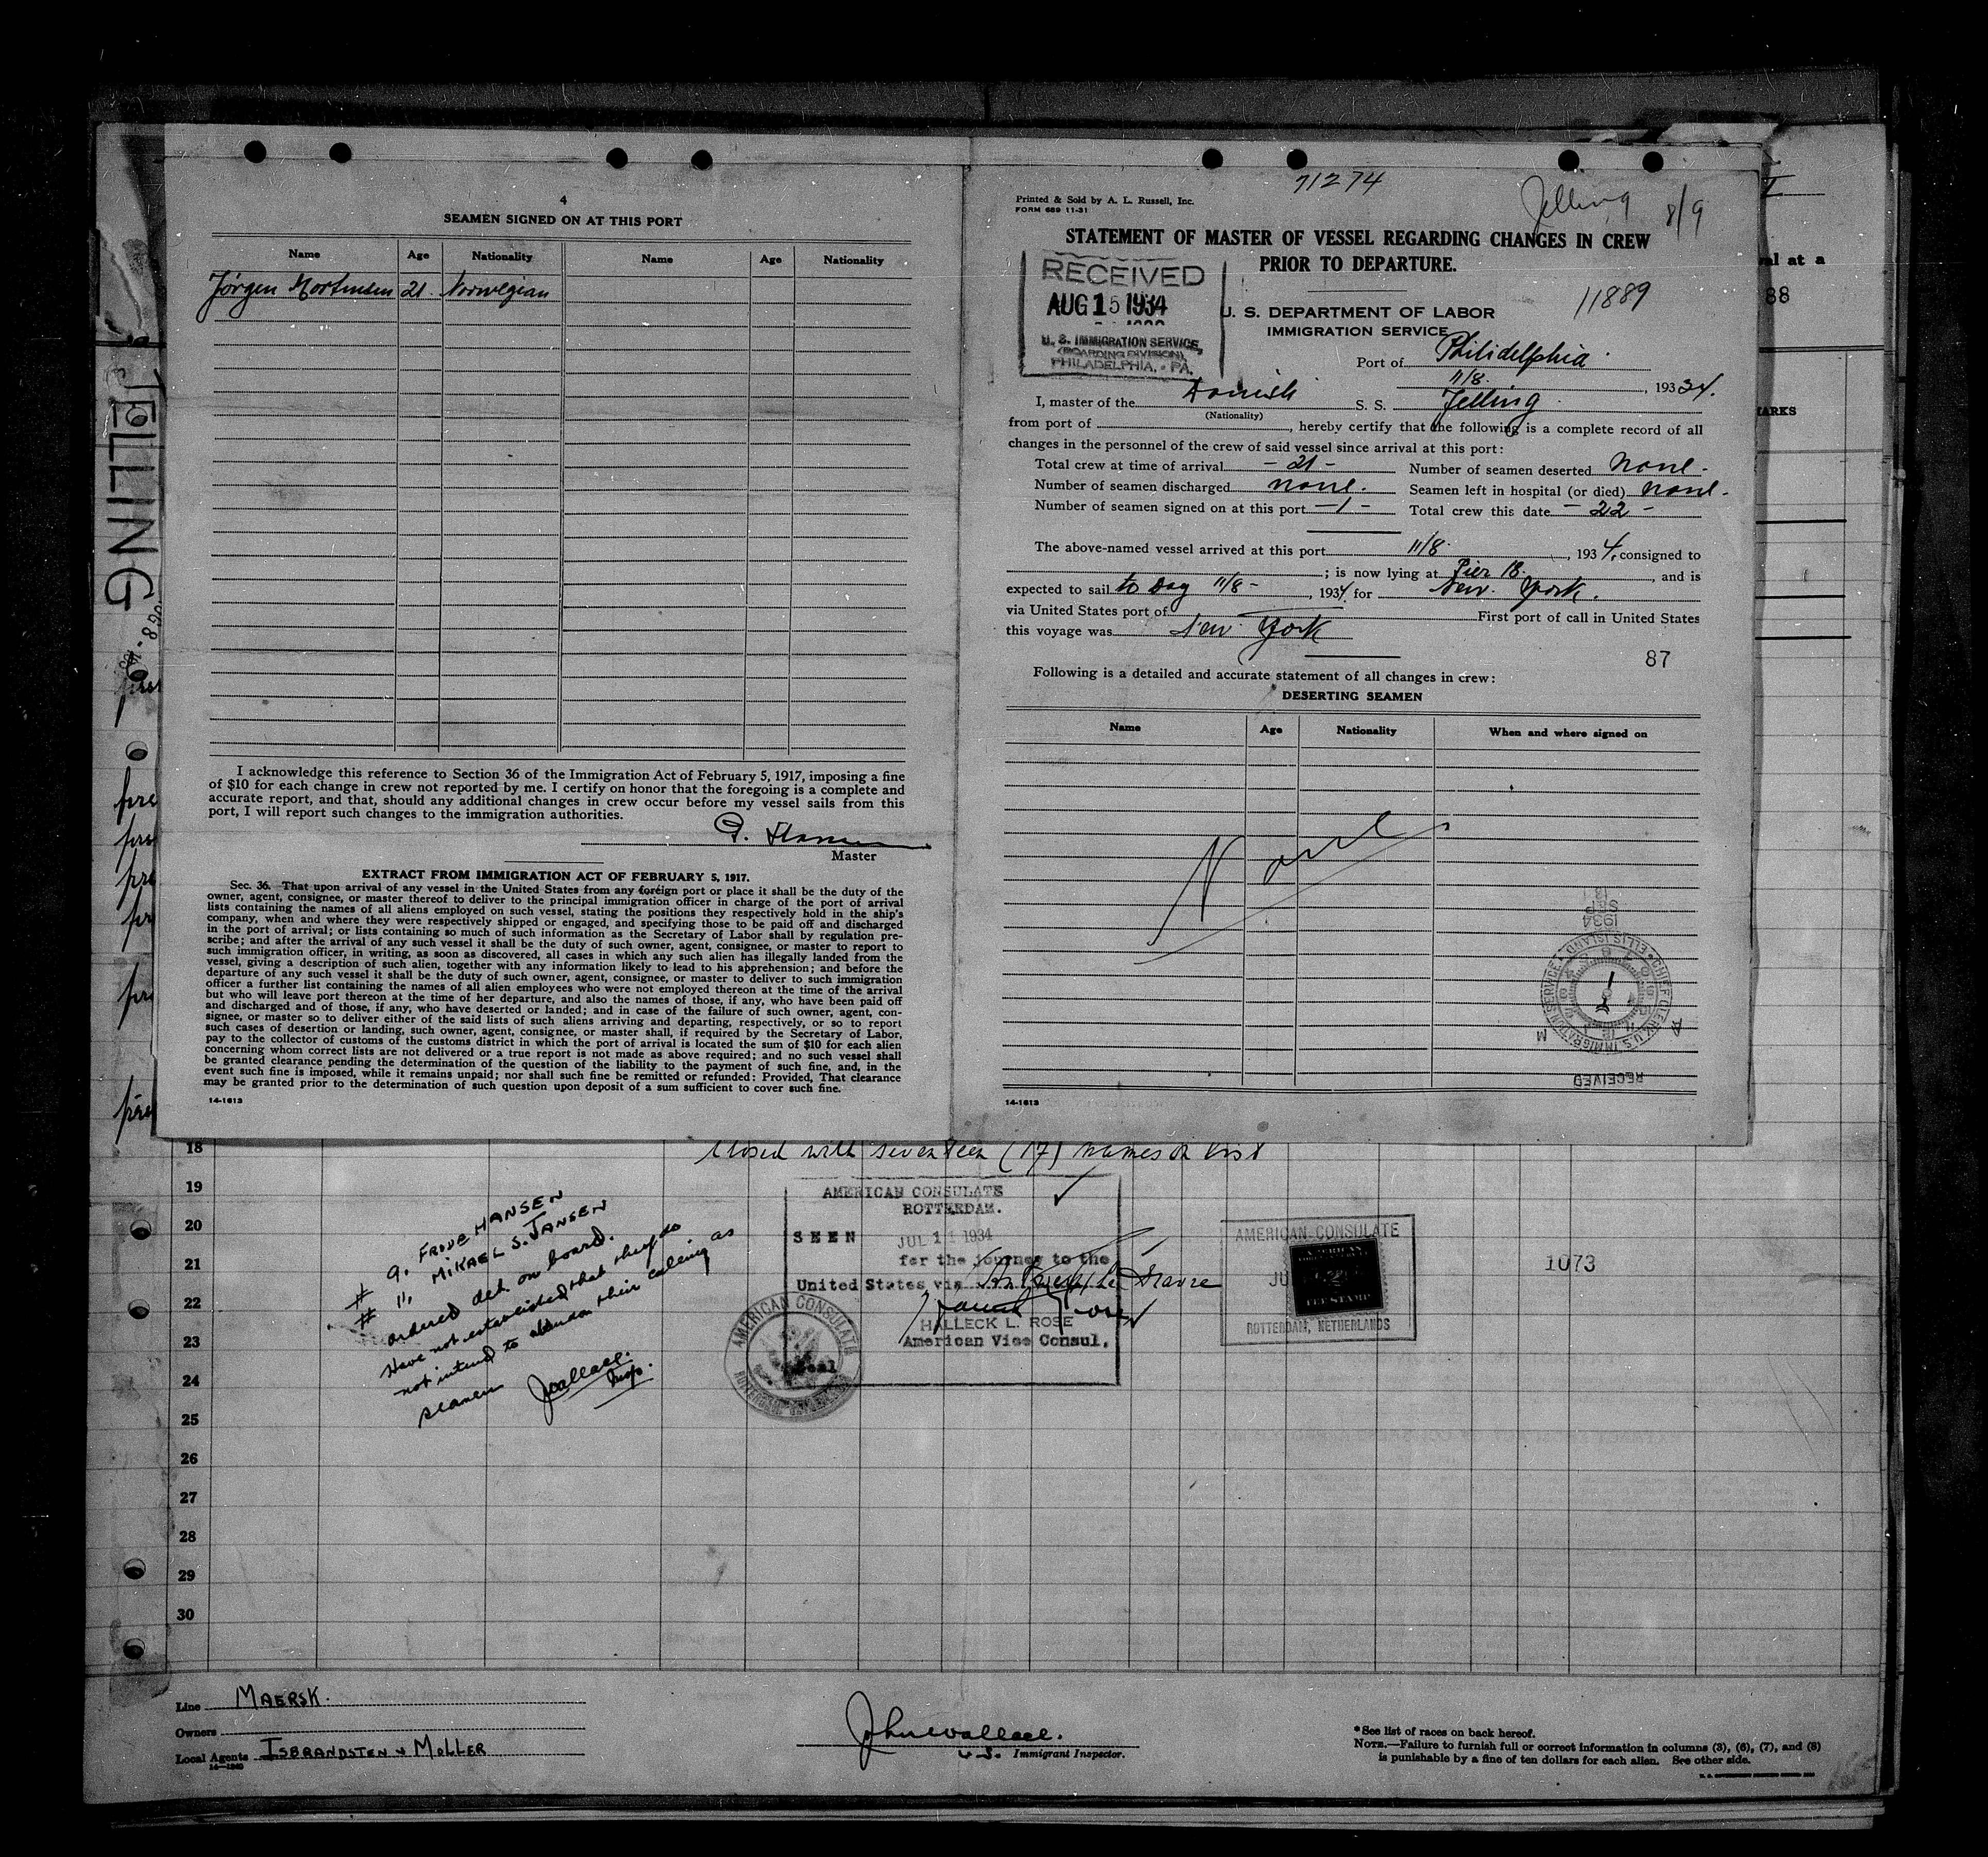 4
SEAMEN SIGNED ON AT THIS PORT
Name Age Nationality Name Age Nationality
Jørgen Mortensen 21. Norwegian
I acknowledge this reference to Section 36 of the Immigration Act of February 5, 1917, imposing a fine
of $10 for each change in crew not reported by me. I certify on honor that the foregoing is a complete and
accurate report, and that, should any additional changes in crew occur before my vessel sails from this
port, I will report such changes to the immigration authorities.
Master
EXTRACT FROM IMMIGRATION ACT OF FEBRUARY 5, 1917.
Sec. 36. That upon arrival of any vessel in the United States from any foreign port or place it shall be the duty of the
owner, agent, consignee, or master thereof to deliver to the principal immigration officer in charge of the port of arrival
lists containing the names of all aliens employed on such vessel, stating the positions they respectively hold in the ship's
company, when and where they were respectively shipped or engaged, and specifying those to be paid off and discharged
in the port of arrival; or lists containing so much of such information as the Secretary of Labor shall by regulation pre-
scribe; and after the arrival of any such vessel it shall be the duty of such owner, agent, consignee, or master to report to
such immigration officer, in writing, as soon as discovered, all cases in which any such alien has illegally landed from the
vessel, giving a description of such alien, together with any information likely to lead to his apprehension; and before the
departure of any such vessel it shall be the duty of such owner, agent, consignee, or master to deliver to such immigration
officer a further list containing the names of all alien employees who were not employed thereon at the time of the arrival
but who will leave port thereon at the time of her departure, and also the names of those, if any, who have been paid off
and discharged and of those, if any, who have deserted or landed; and in case of the failure of such owner, agent, con-
signee, or master so to deliver either of the said lists of such aliens arriving and departing, respectively, or so to report
such cases of desertion or landing, such owner, agent, consignee, or master shall, if required by the Secretary of Labor,
pay to the collector of customs of the customs district in which the port of arrival is located the sum of $10 for each alien
concerning whom correct lists are not delivered or a true report is not made as above required; and no such vessel shall
be granted clearance pending the determination of the question of the liability to the payment of such fine, and, in the
event such fine is imposed, while it remains unpaid; nor shall such fine be remitted or refunded: Provided, That clearance
may be granted prior to the determination of such question upon deposit of a sum sufficient to cover such fine.
14-1613
71274
Jelling 8/9
Printed & Sold by A. L. Russell, Inc.
FORM 689 11-31
STATEMENT OF MASTER OF VESSEL REGARDING CHANGES IN CREW
PRIOR TO DEPARTURE.
RECEIVED
AUG 15 1934
U. S. IMMIGRATION SERVICE,
(BOARDING DIVISION),
PHILADELPHIA, - PA.
11889
U. S. DEPARTMENT OF LABOR
IMMIGRATION SERVICE
Port of Philidelphia
11/8. , 19334.
I, master of the Danish S. S. Jelling
(Nationality)
from port of , hereby certify that the following is a complete record of all
changes in the personnel of the crew of said vessel since arrival at this port:
Total crew at time of arrival - 21 - Number of seamen deserted None -
Number of seamen discharged none. Seamen left in hospital (or died) none -
Number of seamen signed on at this port -1- Total crew this date - 22 -
The above-named vessel arrived at this port 11/8. , 1934, consigned to
; is now lying at Pier 18. , and is
expected to sail to Day 11/8 - , 1934 for New York.
via United States port of First port of call in United States
this voyage was New York
87
Following is a detailed and accurate statement of all changes in crew:
DESERTING SEAMEN
Name Age Nationality When and where signed on
None
1934
SEP
CHIEF CLERK U.S. IMMIGRATION SERVICE ELLIS ISLAND
RECEIVED
14-1613
JELLING
val at a
88
MARKS
18 Closed with seventeen (17) names on list
19
20
21
22
23
24
25
26
27
28
29
30
# 9, FRODE HANSEN
# 11, MIKAEL S. JANSEN
ordered det. on board.
Have not established that they do
not intend to abandon their calling as
seamen
JWallace.
Insp.
AMERICAN CONSULATE
ROTTERDAM.
SEEN JUL 11 1934
for the journey to the
United States via Antwerp, Le Havre
HALLECK L. ROSE
American Vice Consul.
AMERICAN CONSULATE
Seal
AMERICAN CONSULATE
FEE STAMP
ROTTERDAM, NETHERLANDS
1073
Line MAERSK.
Owners
Local Agents ISBRANDSTEN & MOLLER
14-1240
John Wallace.
U.S. Immigrant Inspector.
*See list of races on back hereof.
NOTE.—Failure to furnish full or correct information in columns (3), (6), (7), and (8)
is punishable by a fine of ten dollars for each alien. See other side.